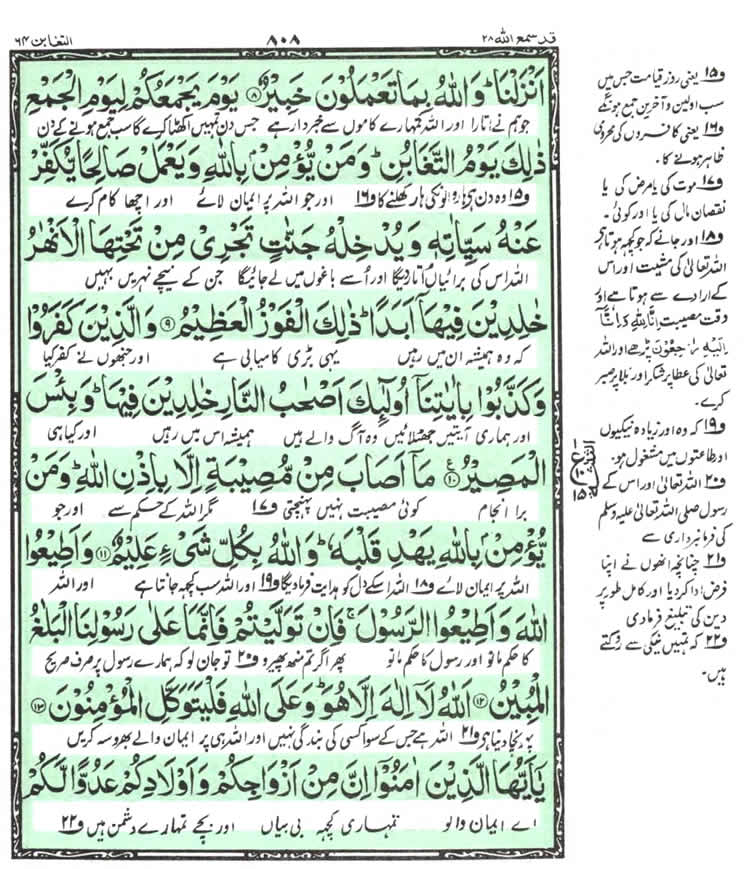 قد سمع اللہ ۲۸
۸۰۸
التغابن ۶۴
اَنْزَلْنَا ؕ وَاللّٰهُ بِمَا تَعْمَلُوْنَ خَبِیْرٌ ﴿۸﴾ یَوْمَ یَجْمَعُكُمْ لِیَوْمِ الْجَمْعِ
جو ہم نے اتارا اور اللہ تمہارے کاموں سے خبردار ہے جس دن تمہیں اکٹھا کرے گا سب جمع ہونے کے دن
ذٰلِكَ یَوْمُ التَّغَابُنِ ؕ وَمَنْ یُّؤْمِنْۢ بِاللّٰهِ وَیَعْمَلْ صَالِحًا یُّكَفِّرْ
ف۱۵ وہ دن ہے ہار والوں کی ہار کھلنے کا ف۱۶ اور جو اللہ پر ایمان لائے اور اچھا کام کرے
عَنْهُ سَیِّاٰتِهٖ وَیُدْخِلْهُ جَنّٰتٍ تَجْرِیْ مِنْ تَحْتِهَا الْاَنْهٰرُ
اللہ اس کی برائیاں اتار دیگا اور اُسے باغوں میں لے جائیگا جن کے نیچے نہریں بہیں
خٰلِدِیْنَ فِیْهَاۤ اَبَدًا ؕ ذٰلِكَ الْفَوْزُ الْعَظِیْمُ ﴿۹﴾ وَالَّذِیْنَ كَفَرُوْا
کہ وہ ہمیشہ ان میں رہیں یہی بڑی کامیابی ہے اور جنھوں نے کفر کیا
وَكَذَّبُوْا بِاٰیٰتِنَاۤ اُولٰٓئِكَ اَصْحٰبُ النَّارِ خٰلِدِیْنَ فِیْهَا ؕ وَبِئْسَ
اور ہماری آیتیں جھٹلائیں وہ آگ والے ہیں ہمیشہ اس میں رہیں اور کیا ہی
الْمَصِیْرُ ﴿۱۰﴾ ع مَاۤ اَصَابَ مِنْ مُّصِیْبَةٍ اِلَّا بِاِذْنِ اللّٰهِ ؕ وَمَنْ
برا انجام کوئی مصیبت نہیں پہنچتی ف۱۷ مگر اللہ کے حکم سے اور جو
یُّؤْمِنْۢ بِاللّٰهِ یَهْدِ قَلْبَهٗ ؕ وَاللّٰهُ بِكُلِّ شَیْءٍ عَلِیْمٌ ﴿۱۱﴾ وَاَطِیْعُوا
اللہ پر ایمان لائے ف۱۸ اللہ اسکے دل کو ہدایت فرما دیگا ف۱۹ اور اللہ سب کچھ جانتا ہے اور اللہ
اللّٰهَ وَاَطِیْعُوا الرَّسُوْلَ ۚ فَاِنْ تَوَلَّیْتُمْ فَاِنَّمَا عَلٰی رَسُوْلِنَا الْبَلٰغُ
کا حکم مانو اور رسول کا حکم مانو پھر اگر تم منھ پھیرو ف۲۰ تو جان لو کہ ہمارے رسول پر صرف صریح
الْمُبِیْنُ ﴿۱۲﴾ اَللّٰهُ لَاۤ اِلٰهَ اِلَّا هُوَ ؕ وَعَلَی اللّٰهِ فَلْیَتَوَكَّلِ الْمُؤْمِنُوْنَ ﴿۱۳﴾
پہنچا دینا ہے ف۲۱ اللہ ہے جس کے سوا کسی کی بندگی نہیں اور اللہ ہی پر ایمان والے بھروسہ کریں
یٰۤاَیُّهَا الَّذِیْنَ اٰمَنُوْۤا اِنَّ مِنْ اَزْوَاجِكُمْ وَاَوْلَادِكُمْ عَدُوًّا لَّكُمْ
اے ایمان والو تمہاری کچھ بی بیاں اور بچے تمہارے دشمن ہیں ف۲۲
ف۱۵ یعنی روز قیامت جس میں
سب اولین و آخرین جمع ہونگے
ف۱۶ یعنی کافروں کی محرومی
ظاہر ہونے کا۔
ف۱۷ موت کی یا مرض کی یا
نقصان مال کی یا اور کوئی۔
ف۱۸ اور جانے کہ جو کچھ ہوتا ہے
اللہ تعالیٰ کی مشیت اور اس
کے ارادے سے ہوتا ہے اور
وقت مصیبت اِنَّا لِلّٰهِ وَاِنَّاۤ
اِلَیْهِ رَاجِعُوْنَ پڑھے اور اللہ
تعالیٰ کی عطا پر شکر اور بلا پر صبر
کرے۔
ف۱۹ کہ وہ اور زیادہ نیکیوں
اور طاعتوں میں مشغول ہو۔
ف۲۰ اللہ تعالیٰ اور اس کے
رسول صلی اللہ تعالیٰ علیہ وسلم
کی فرمانبرداری سے
ف۲۱ چنانچہ انھوں نے اپنا
فرض ادا کر دیا اور کامل طور پر
دین کی تبلیغ فرمادی
ف۲۲ کہ تمہیں نیکی سے روکتے
ہیں۔
الثلٰثة
ع
۱۵